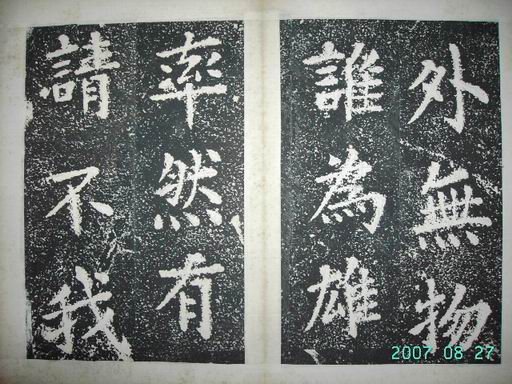 外無物
誰為雄
率然有
請不我
2007 08 27